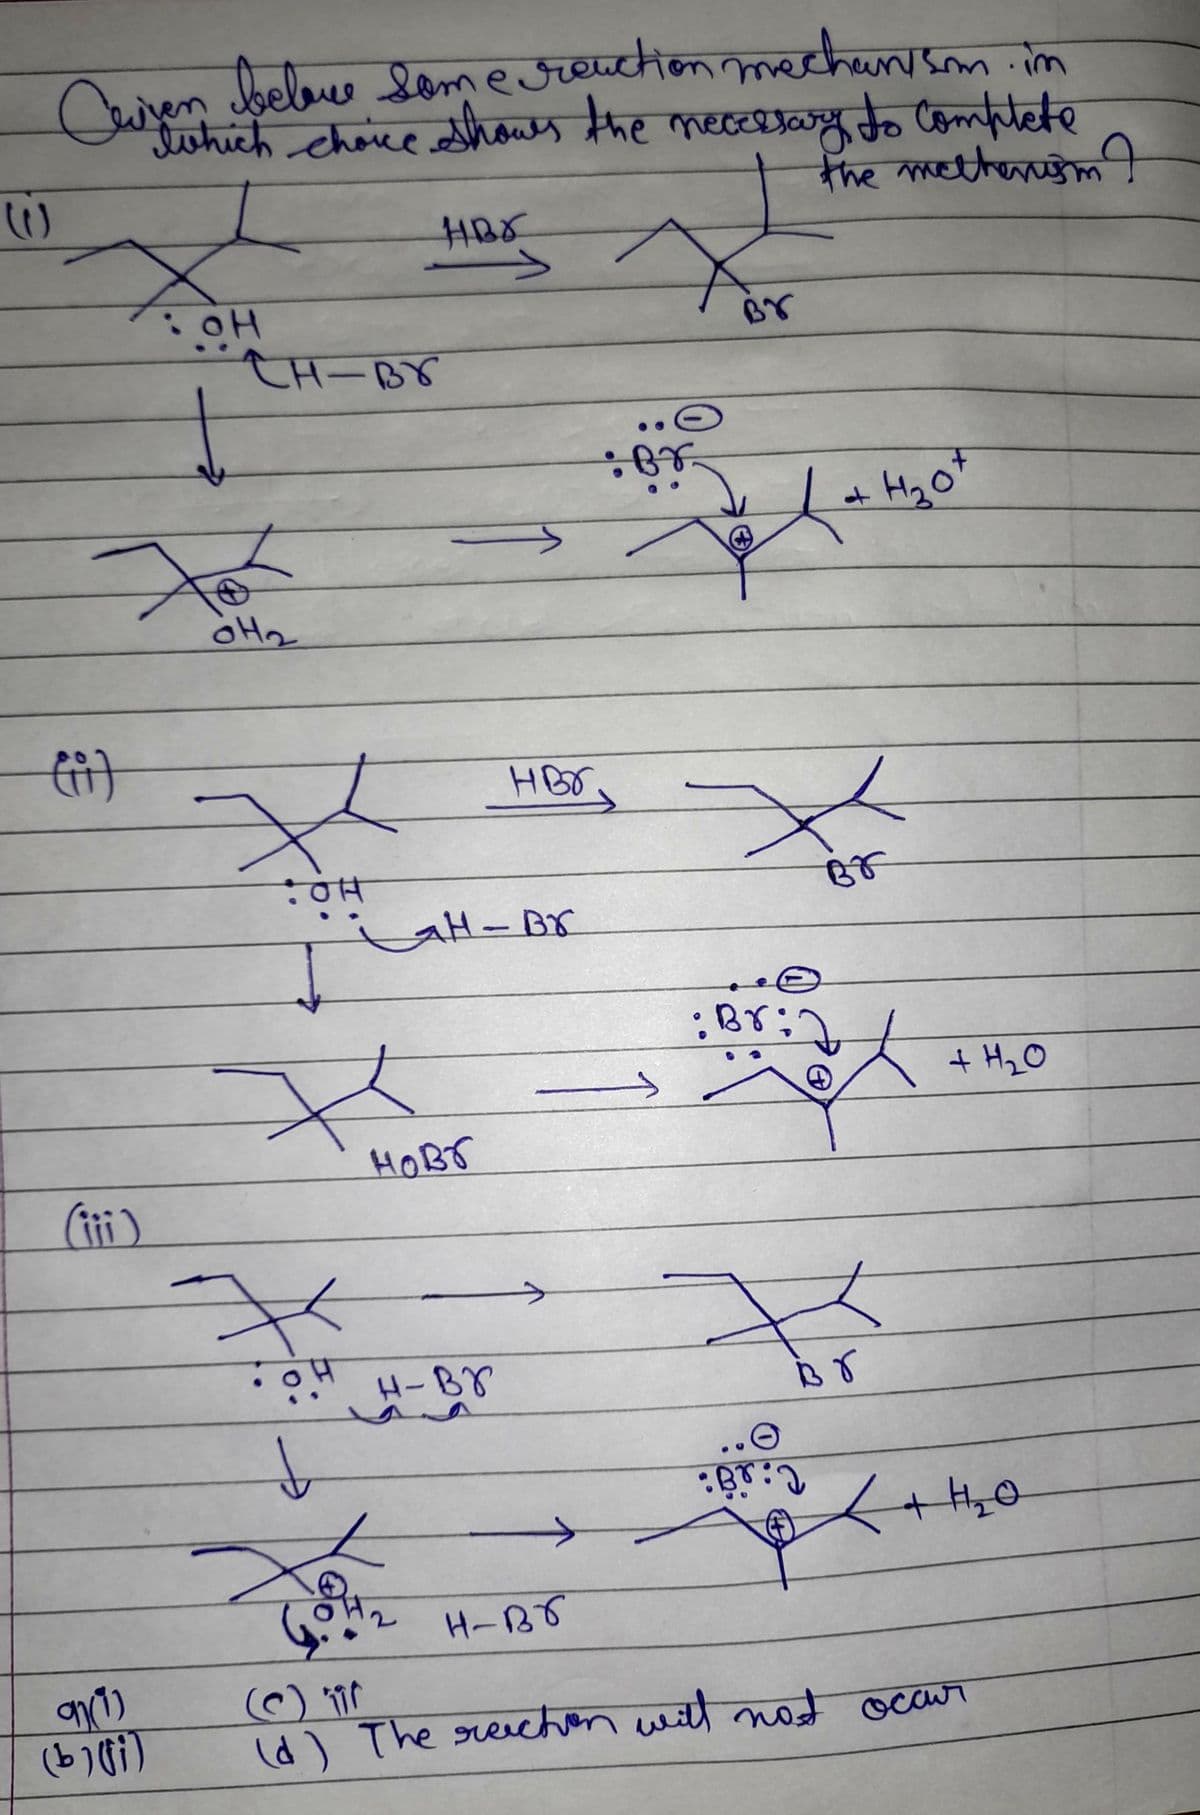 Given below some reaction mechanism. in
which choice shows the necessary to complete
the methenism?
(i)
HBr
: OH
H-Br
Br
:Br
+ H3O+
OH2
(ii)
HBr
:OH
H-Br
Br
:Br:
+ H2O
HOBr
(iii)
:OH H-Br
Br
:Br:
+ H2O
OH2 H-Br
a)(i) (c) iii
(b)(ii) (d) The reaction will not occur